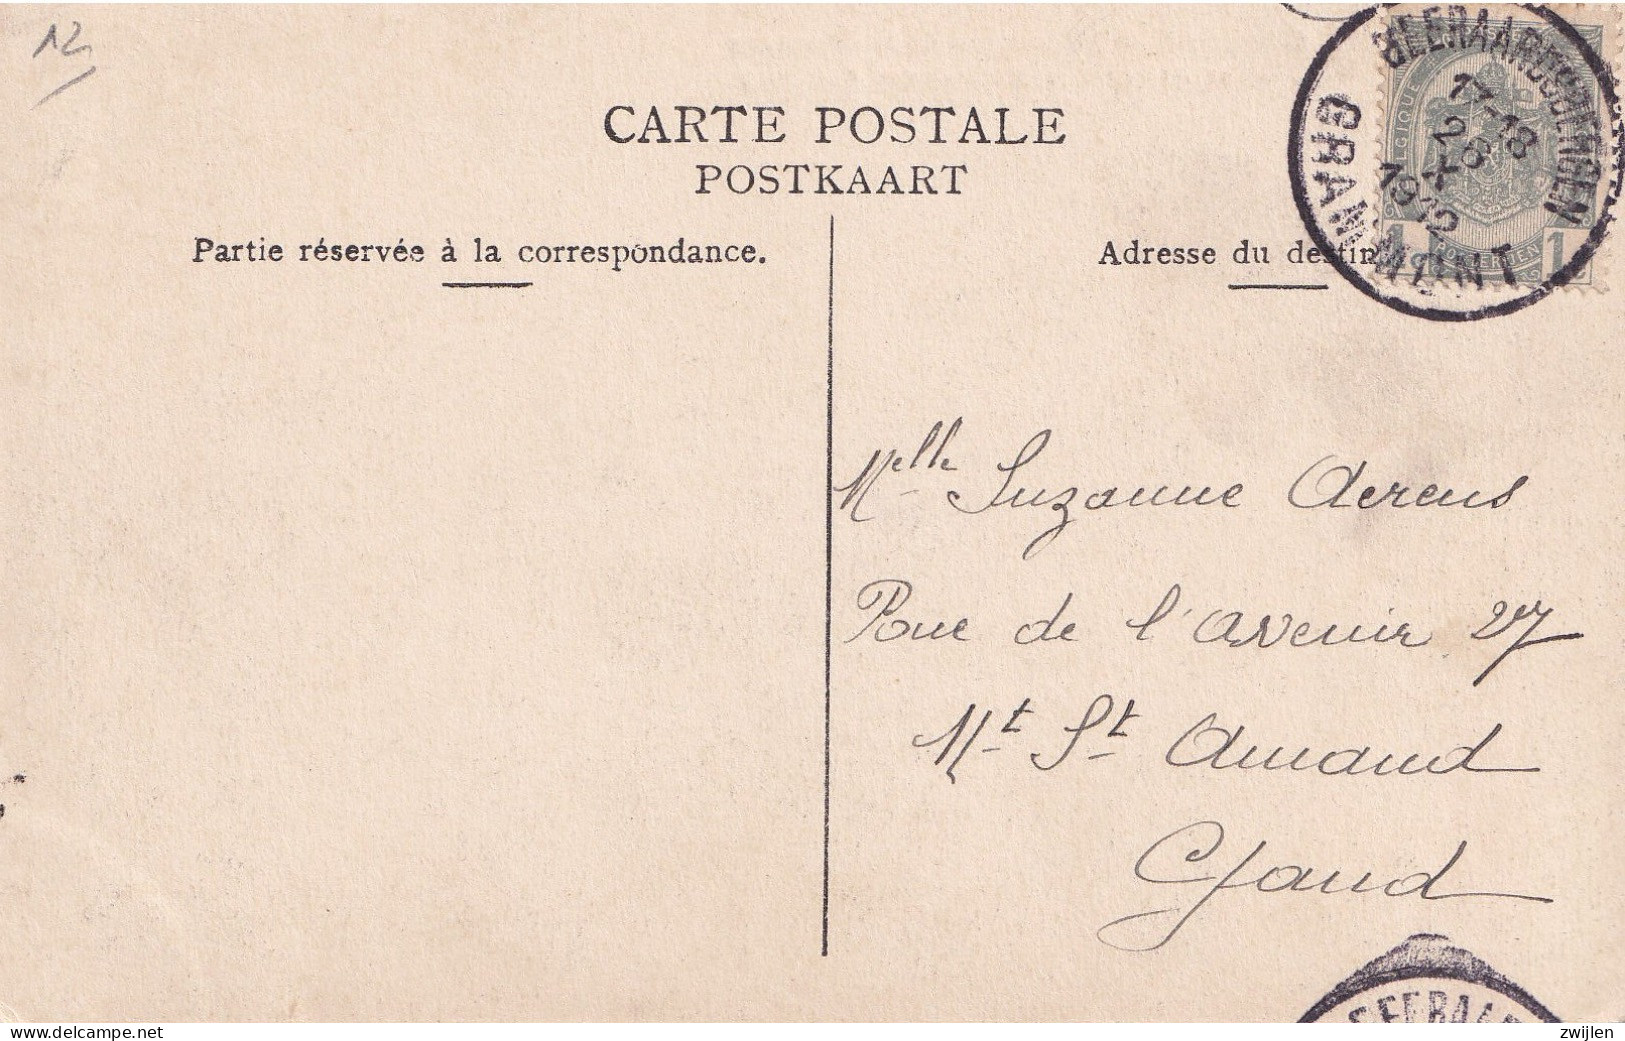 12
CARTE POSTALE
POSTKAART
Partie réservée à la correspondance.
Adresse du destin
GEERAARDSBERGEN
17-18
28
X
1912
GRAMMONT
BELGIQUE
1 1
Melle Suzanne Aerens
Rue de l'avenir 27
Mt St Amand
Gand
GEERAA
delcampe.net
zwijlen